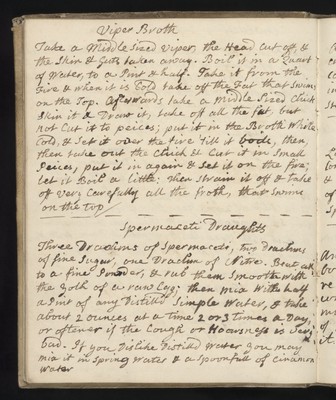 Viper Broth
Take a Middle Sized Viper, the Head cut of, &
the Skin & Guts taken away. Boil it in a Quart
of Water, to a Pint & half. Take it from the
Fire & when it is Cold take off the Fat that Swims
on the Top. Afterwards take a Middle Sized Chick
Skin it & Draw it, take off all the fat, but
not Cut it to peices; put it in the Broth While
Cold, & Set it over the Fire till it boils, then,
then take out the Chick & Cut it in Small
Peices, put it in again & Set it on the fire
let it Boil a little; then Strain it off & take
of very Carefully all the froth, that Swims
on the top
Spermaceti Draughts
Three Drachms of Spermaceti, two Drachms
of fine Sugar, one Drachm of Nitre. Beat all
to a fine Powder, & rub them Smooth with
the Yolk of a raw Egg; then mix With half
a Pint of any Distilld Simple Water, & take
about 2 ounces at a time 2 or 3 times a Day,
or oftener if the Cough or Hoarsness is very
bad. If you Dislike Distill'd Water you may
mix it in Spring Water & a Spoonfull of Cinamon
Water